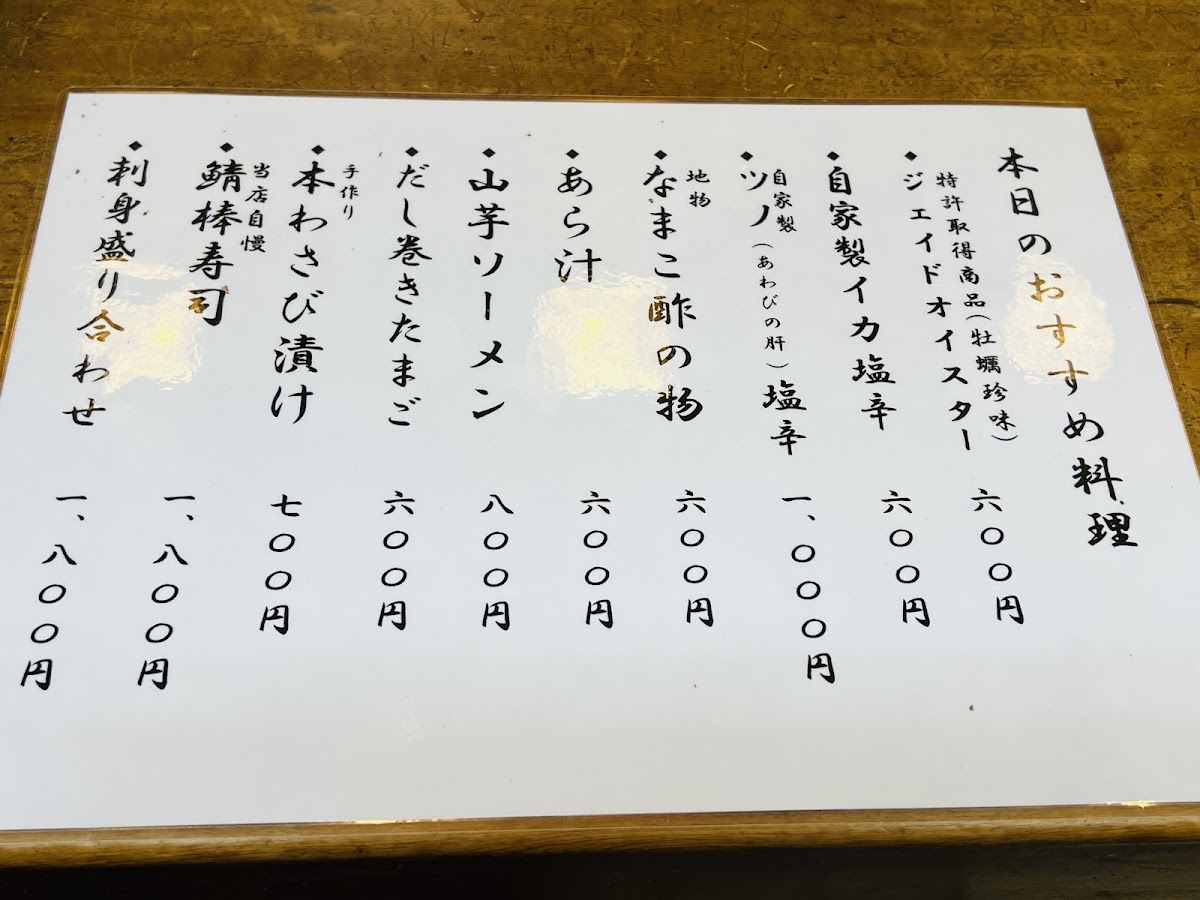 本日のおすすめ料理
特許取得商品(牡蠣珍味)
◆ジェイドオイスター 六〇〇円
◆自家製イカ塩辛 六〇〇円
自家製
◆ツノ(あわびの肝)塩辛 一、〇〇〇円
地物
◆なまこ酢の物 六〇〇円
◆あら汁 六〇〇円
◆山芋ソーメン 八〇〇円
◆だし巻きたまご 六〇〇円
手作り
◆本わさび漬け 七〇〇円
当店自慢
◆鯖棒寿司 一、八〇〇円
◆刺身盛り合わせ 一、八〇〇円